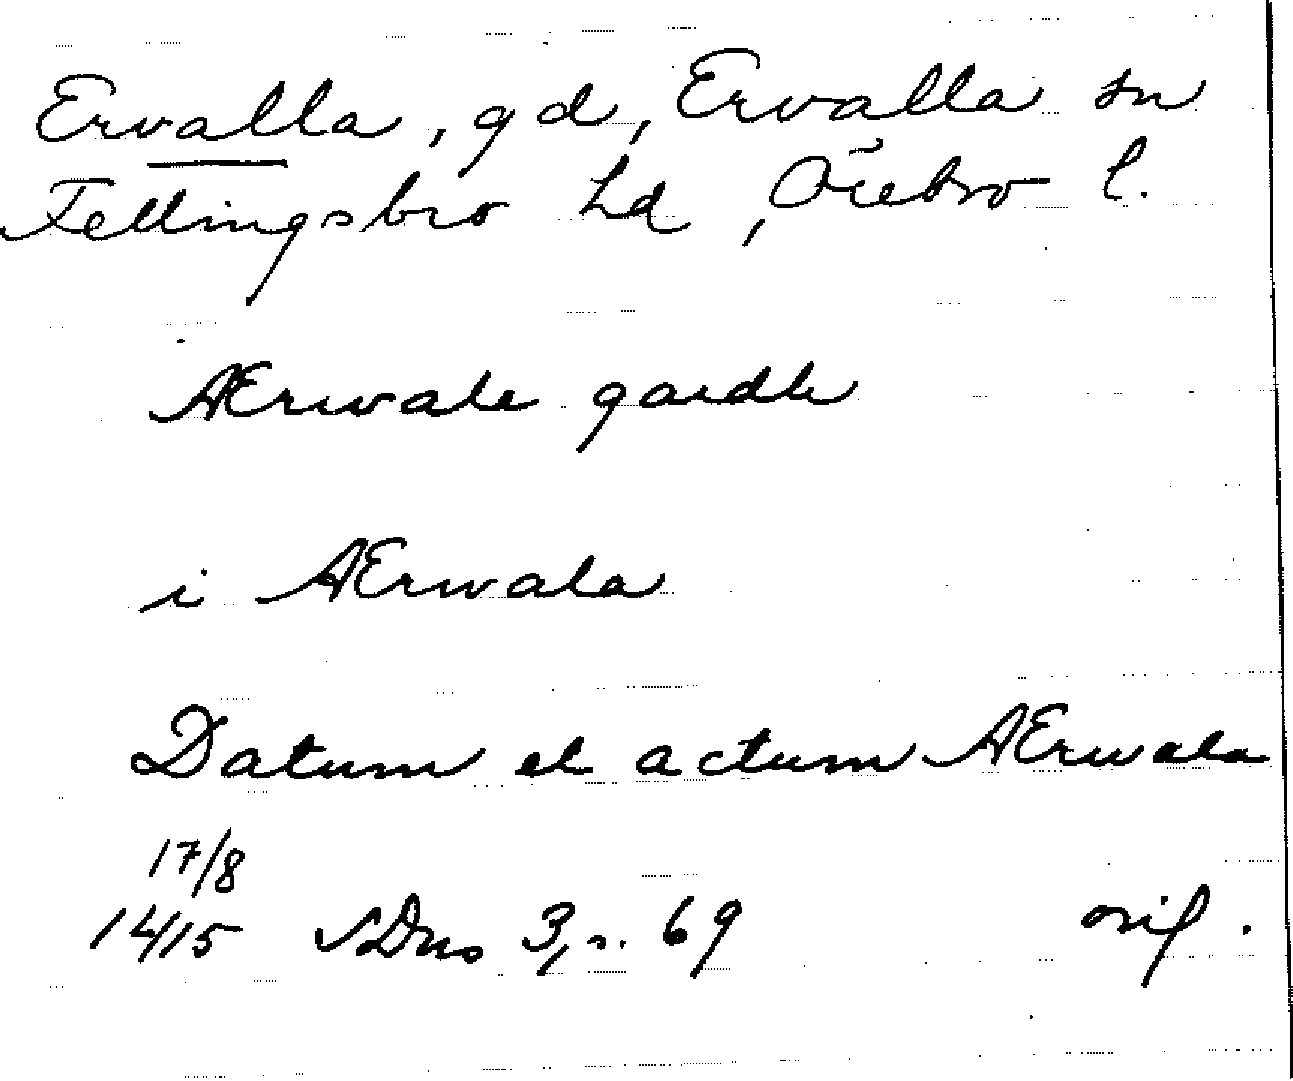 Ervalla, gd, Ervalla sn
Fellingsbro hd, Örebro l.
Ærwale gardh
i Ærwala
Datum et actum Ærwala
17/8
1415 SDns 3, s. 69 orig.